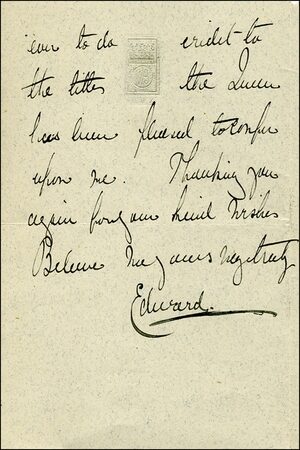 ever to do credit to
the titles the Queen
has been pleased to confer
upon me. Thanking you
again for your kind wishes
Believe me yours very truly
Edward.